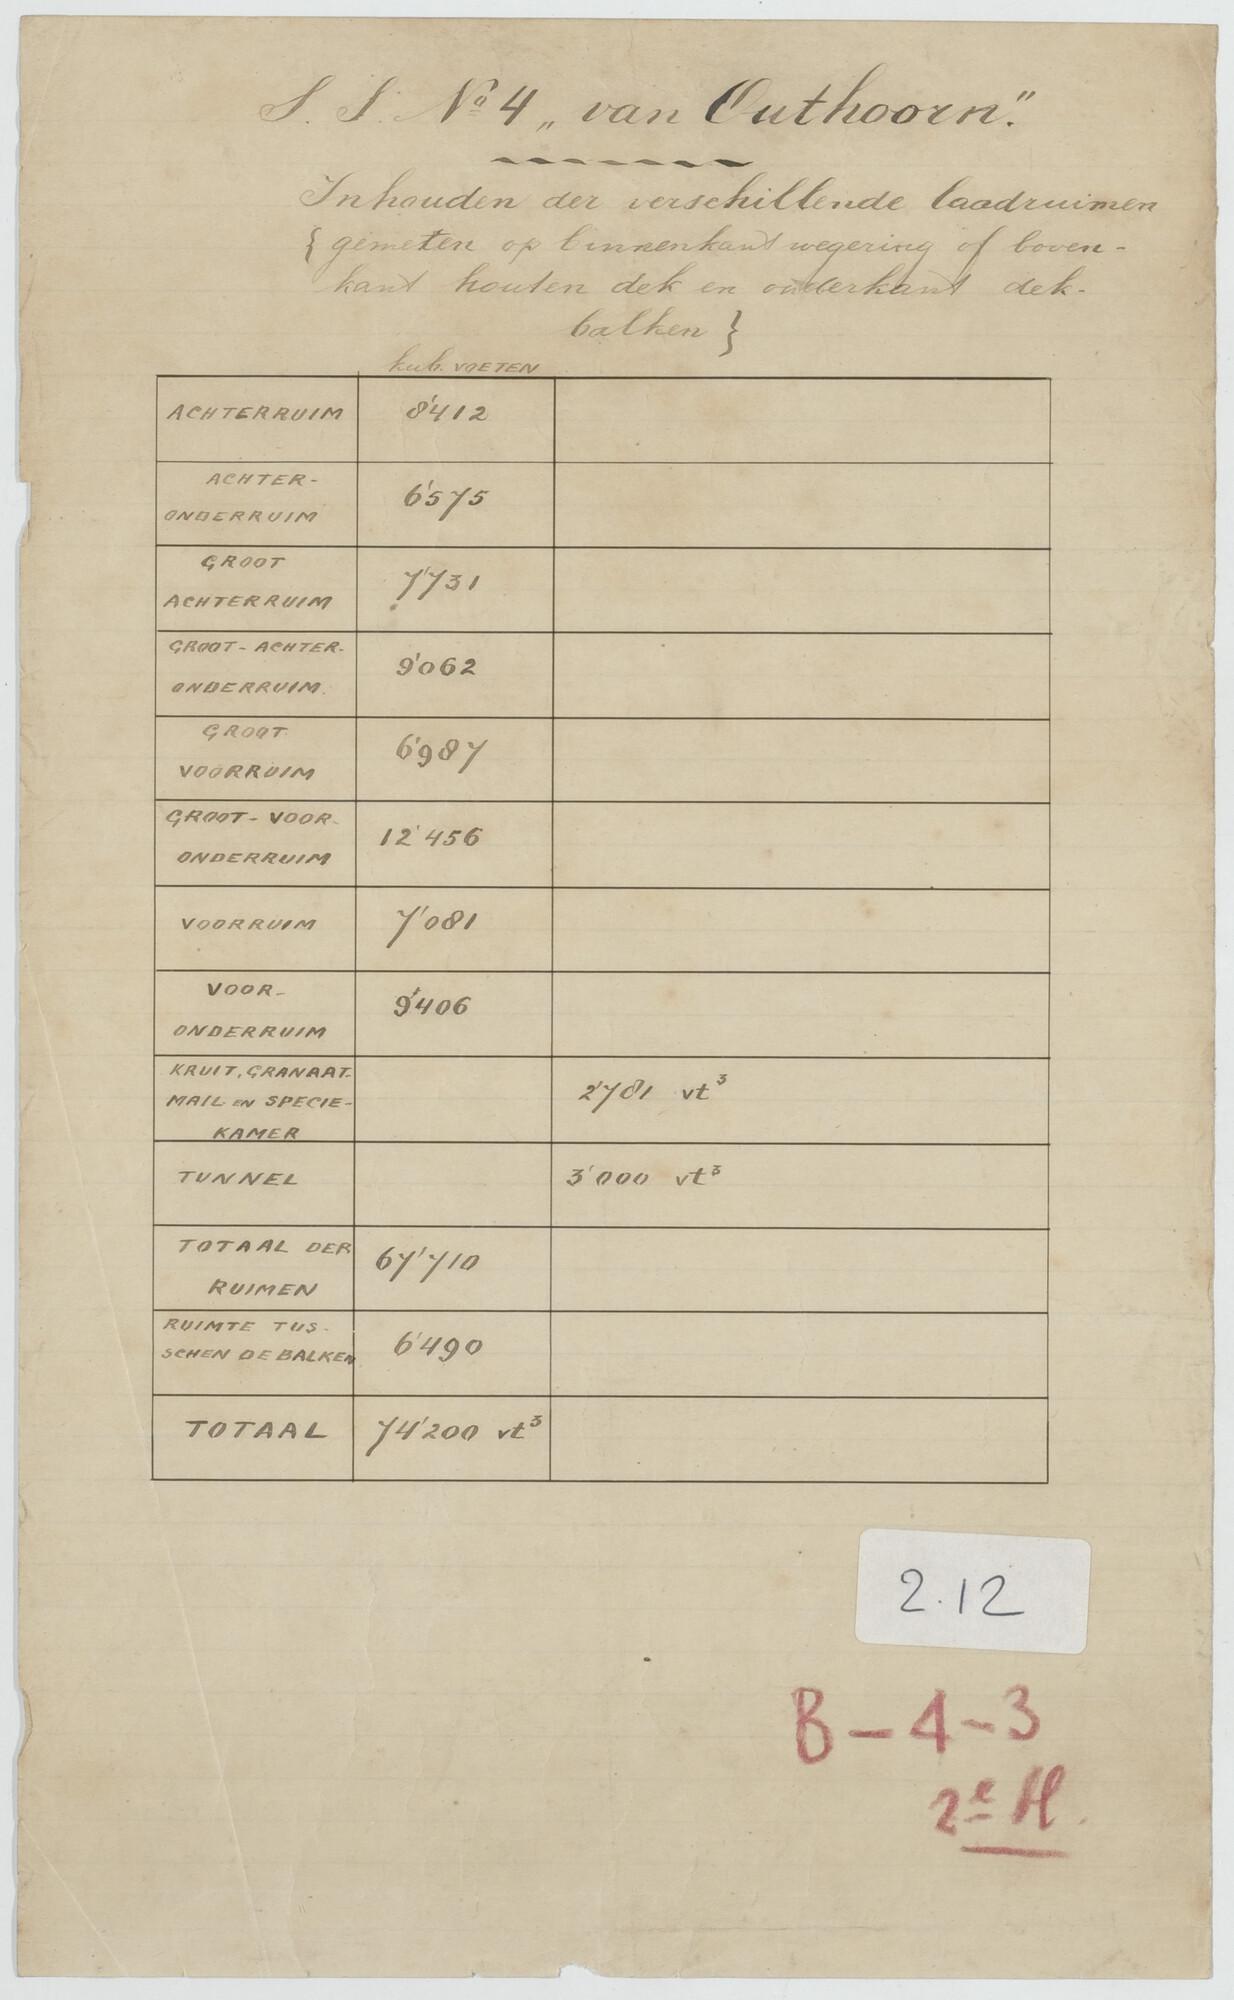 S. S. No 4 „van Outhoorn".
Inhouden der verschillende laadruimen
{ gemeten op binnenkant wegering of boven-
kant houten dek en onderkant dek-
balken }
kub. VOETEN
ACHTERRUIM 8'412
ACHTER-
ONDERRUIM 6'575
GROOT
ACHTERRUIM 7'731
GROOT-ACHTER-
ONDERRUIM. 9'062
GROOT
VOORRUIM 6'987
GROOT-VOOR-
ONDERRUIM 12'456
VOORRUIM 7'081
VOOR-
ONDERRUIM 9'406
KRUIT, GRANAAT-
MAIL EN SPECIE-
KAMER 2'781 vt³
TUNNEL 3'000 vt³
TOTAAL DER
RUIMEN 67'710
RUIMTE TUS-
SCHEN DE BALKEN 6'490
TOTAAL 74'200 vt³
2.12
B-4-3
2e H.